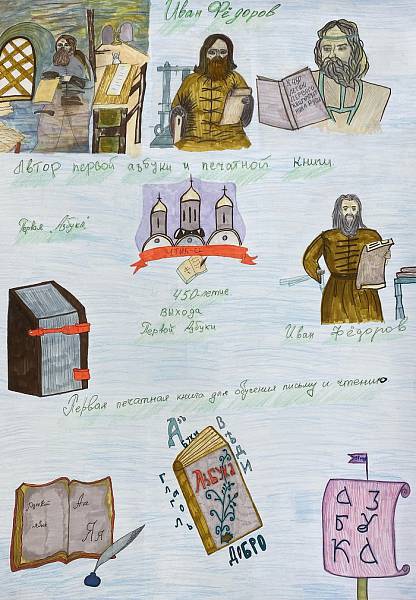 Иван Фёдоров
Автор первой азбуки и печатной книги.
Первая "Азбука"
450-летие
выхода
Первой Азбуки
Иван Фёдоров
Первая печатная книга для обучения письму и чтению
Азъ
Буки
Вѣди
Глаголь
Добро
АЗЪБУКА
Русский
язык
Аа
Яя
АЗ
БУ
КА